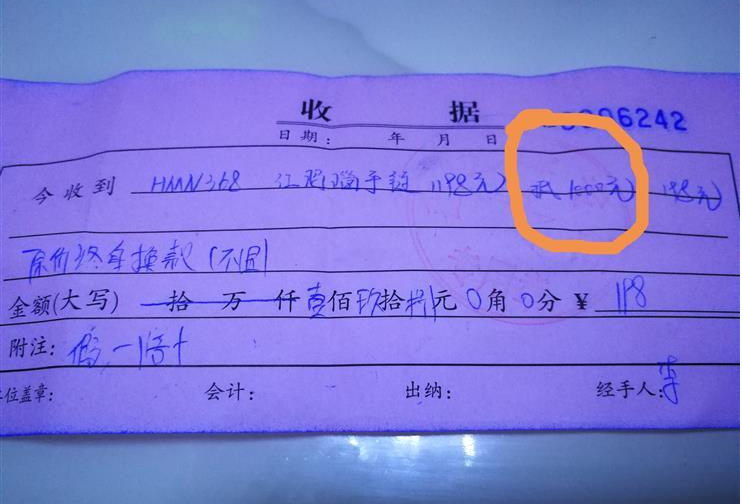 收 据
6242
日期: 年 月 日
今收到 HMN368 手链 1198元 抵1000元 198元
原价终身换款(不退)
金额(大写) 拾 万 仟壹佰玖拾捌元0角0分¥ 198
附注: 假一
位盖章: 会计: 出纳: 经手人:李